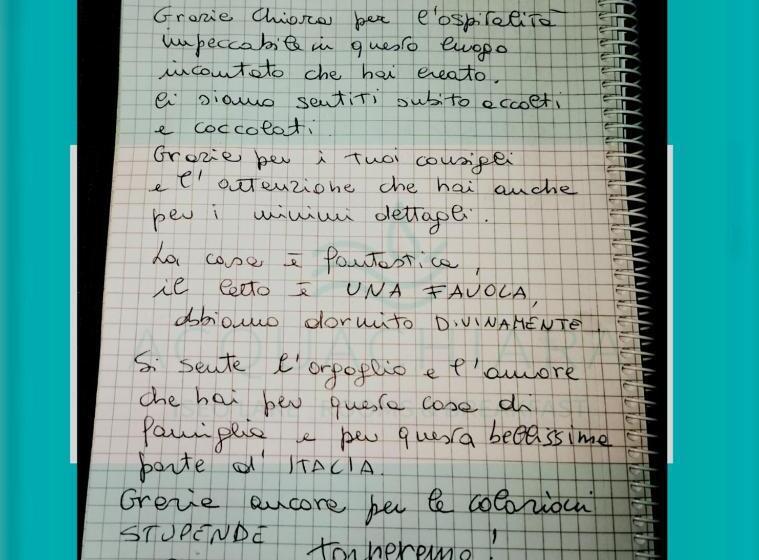 Grazie Chiara per l'ospitalità
impeccabile in questo luogo
incantato che hai creato.
Ci siamo sentiti subito accolti
e coccolati.
Grazie per i tuoi consigli
e l'attenzione che hai anche
per i minimi dettagli.
La casa è fantastica,
il letto è UNA FAVOLA,
abbiamo dormito DIVINAMENTE.
Si sente l'orgoglio e l'amore
che hai per questa casa di
famiglia e per questa bellissima
parte d'ITALIA.
Grazie ancora per le colazioni
STUPENDE
torneremo!
ACQUACHIARA